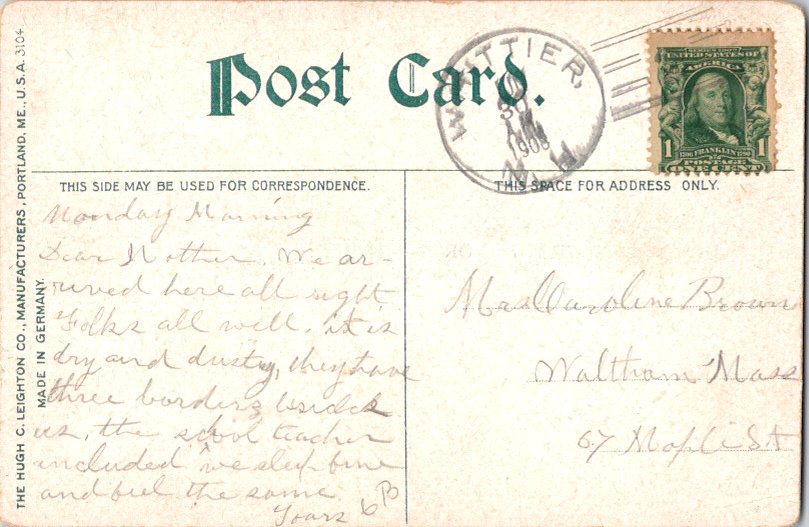 Post Card.
WHITTIER,
30
1908
N.H.
SERIES 1902
UNITED STATES OF
AMERICA
1 1706 FRANKLIN 1790 1
POSTAGE
ONE CENT
THE HUGH C. LEIGHTON CO., MANUFACTURERS, PORTLAND, ME., U.S.A. 3104
MADE IN GERMANY.
THIS SIDE MAY BE USED FOR CORRESPONDENCE.
Monday Morning
Dear Mother. We ar-
rived here all right
Folks all well. it is
dry and dusty, they have
three borders besides
us, the scool teacher
included we sleep fine
and feel the same.
Yours
THIS SPACE FOR ADDRESS ONLY.
Mrs Caroline Brown
Waltham Mass
67 Maple St